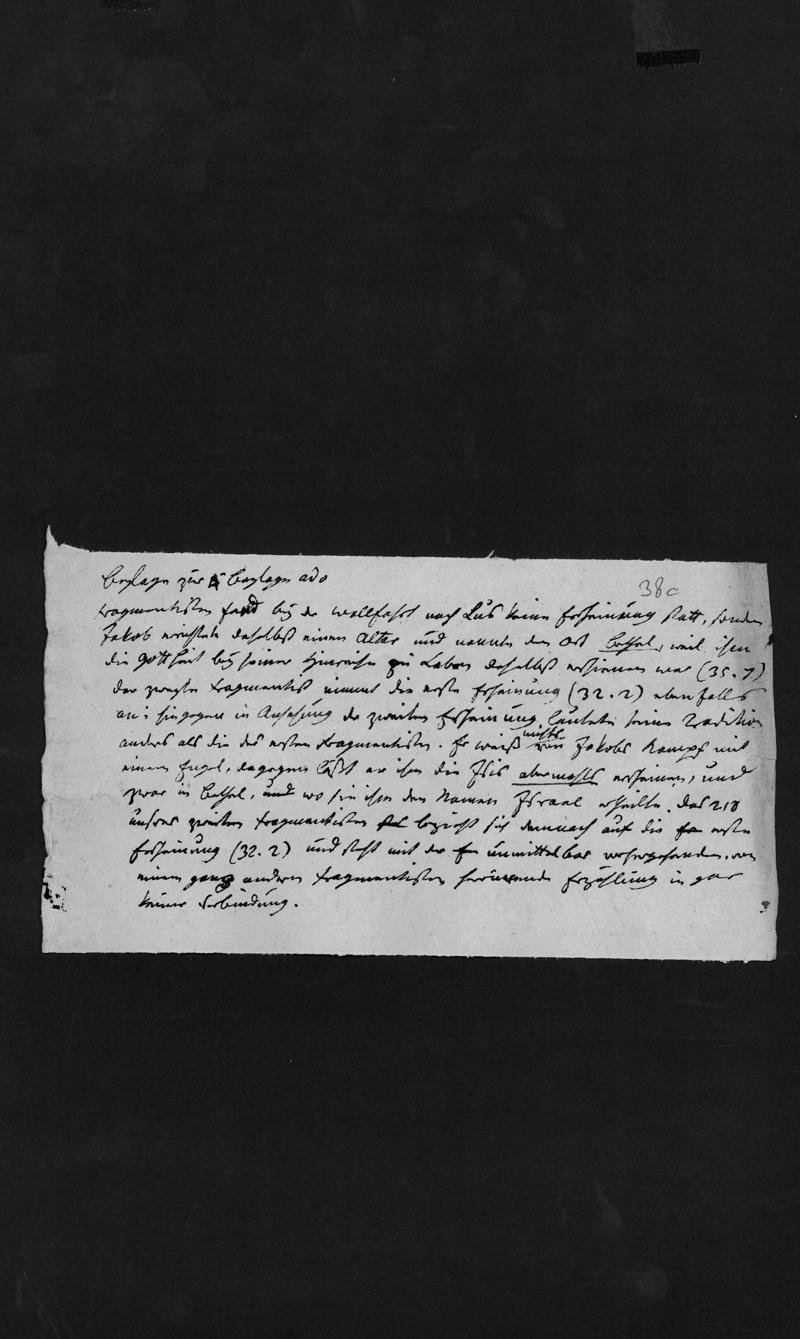 Beylage zur Beylage ado
38c
tragmentisten fand bey der wallfahrt nach Lus keine Erscheinung statt, sondern
Jakob errichtete daselbst einen Altar und nannte den Ort Bethel, weil ihm
die Gottheit bey seiner Hinreise zu Laban daselbst erschienen war (35.7)
der zweyte Fragmentist nimmt die erste Erscheinung (32.2) ebenfalls
an; hingegen in Ansehung der zweiten Erscheinung lautete seine Tradition
anders als die des ersten Fragmentisten. Er weiß nichts von Jakobs Kampf mit
einem Engel, dagegen läßt er ihm die abermahls erscheinen, und
zwar in Bethel, und wo sie ihm den Namen Israel ertheilte. Das 218
unsres zweiten Fragmentisten bezieht sich demnach auf die erste
Erscheinung (32.2) und steht mit der unmittelbar vorhergehenden, von
einem ganz andern Fragmentisten herrührende Erzählung in gar
keiner Verbindung.